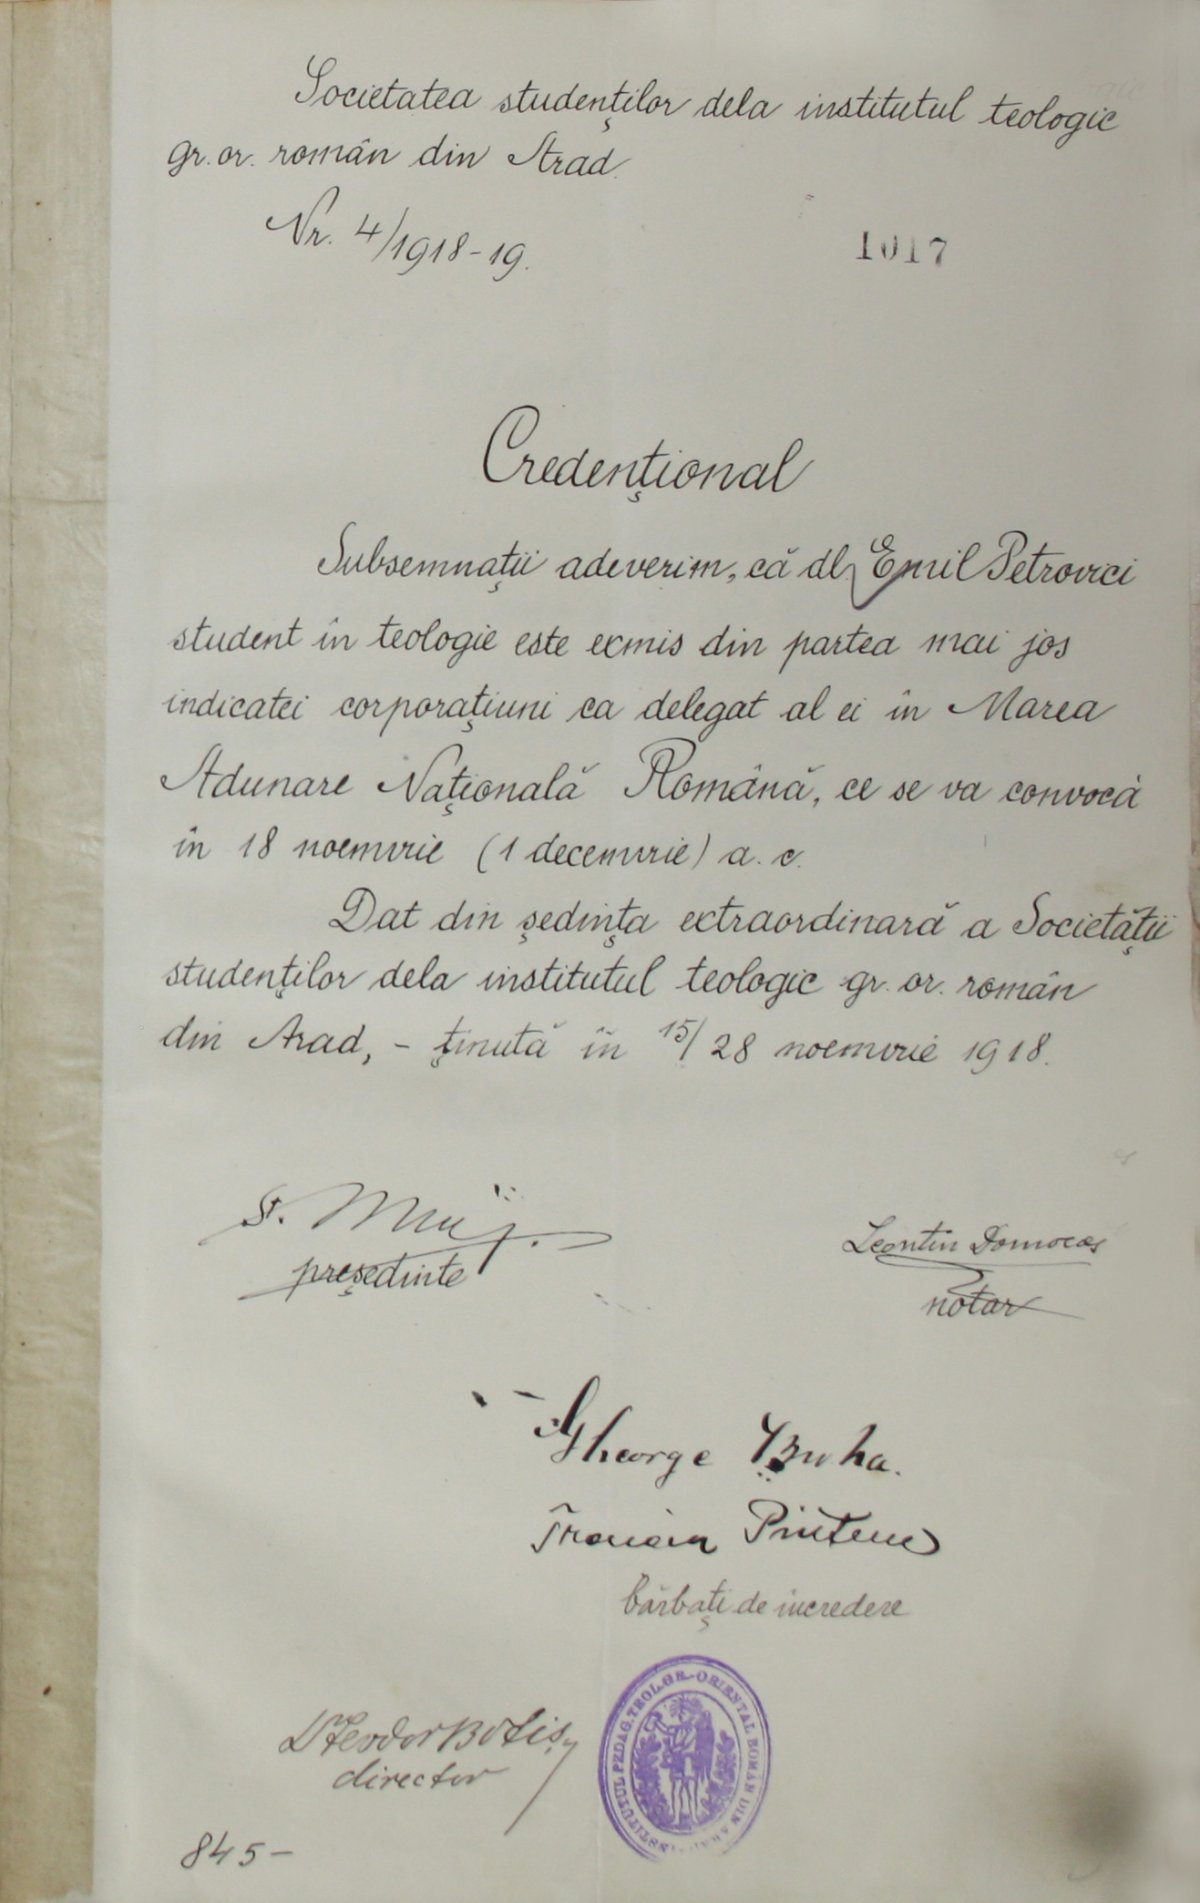 Societatea studenților dela institutul teologic
gr. or. român din Arad.
Nr. 4/1918-19.
1017
Credențional
Subsemnații adeverim, că dl Emil Petrovici
student în teologie este exmis din partea mai jos
indicatei corporațiuni ca delegat al ei în Marea
Adunare Națională Română, ce se va convocá
în 18 noemvrie (1 decemvrie) a. c.
Dat din ședința extraordinară a Societății
studenților dela institutul teologic gr. or. român
din Arad, - ținută în 15/28 noemvrie 1918.
președinte
Leontin Domocos
notar
Gheorge Buha.
Traian Pintean
bărbați de încredere
INSTITUTUL PEDAG. TEOL. GR.-ORIENTAL ROMÂN DIN ARAD
Dr Teodor Botiș
director
845-